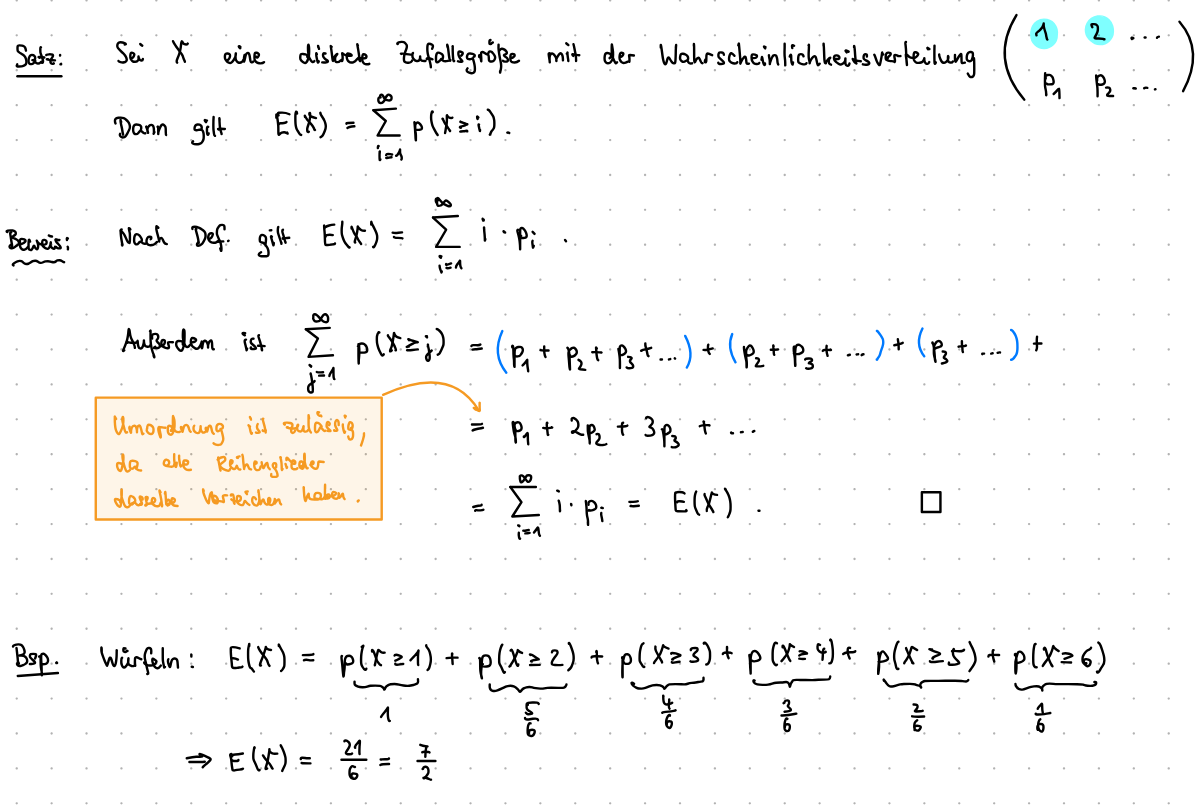 Satz: Sei X eine diskrete Zufallsgröße mit der Wahrscheinlichkeitsverteilung ( 1 2 ... / p₁ p₂ ... )
Dann gilt E(X) = ∑_{i=1}^{∞} p(X≥i).
Beweis: Nach Def. gilt E(X) = ∑_{i=1}^{∞} i · p_i .
Außerdem ist ∑_{j=1}^{∞} p(X≥j) = (p₁ + p₂ + p₃ + ...) + (p₂ + p₃ + ...) + (p₃ + ...) +
= p₁ + 2p₂ + 3p₃ + ...
Umordnung ist zulässig,
da alle Reihenglieder
dasselbe Vorzeichen haben.
= ∑_{i=1}^{∞} i · p_i = E(X) . □
Bsp. Würfeln: E(X) = p(X≥1) + p(X≥2) + p(X≥3) + p(X≥4) + p(X≥5) + p(X≥6)
1 5/6 4/6 3/6 2/6 1/6
⇒ E(X) = 21/6 = 7/2